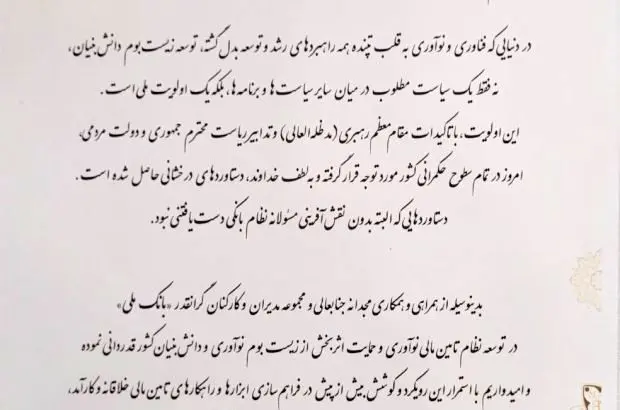 در دنیایی که فناوری و نوآوری به قلب تپنده همه راهبردهای رشد و توسعه بدل گشته، توسعه زیست بوم دانش بنیان،
نه فقط یک سیاست مطلوب در میان سایر سیاست ها و برنامه ها، بلکه یک اولویت ملی است.
این اولویت، با تاکیدات مقام معظم رهبری (مدظله العالی) و تدابیر ریاست محترم جمهوری و دولت مردمی،
امروز در تمام سطوح حکمرانی کشور مورد توجه قرار گرفته و به لطف خداوند، دستاوردهای درخشانی حاصل شده است.
دستاوردهایی که البته بدون نقش آفرینی مسئولانه نظام بانکی دست یافتنی نبود.
بدینوسیله از همراهی و همکاری مجدانه جنابعالی و مجموعه مدیران و کارکنان گرانقدر «بانک ملی»
در توسعه نظام تامین مالی نوآوری و حمایت اثربخش از زیست بوم نوآوری و دانش بنیان کشور قدردانی نموده
و امیدواریم با استمرار این رویکرد و کوشش بیش از پیش در فراهم سازی ابزارها و راهکارهای تامین مالی خلاقانه و کارآمد،